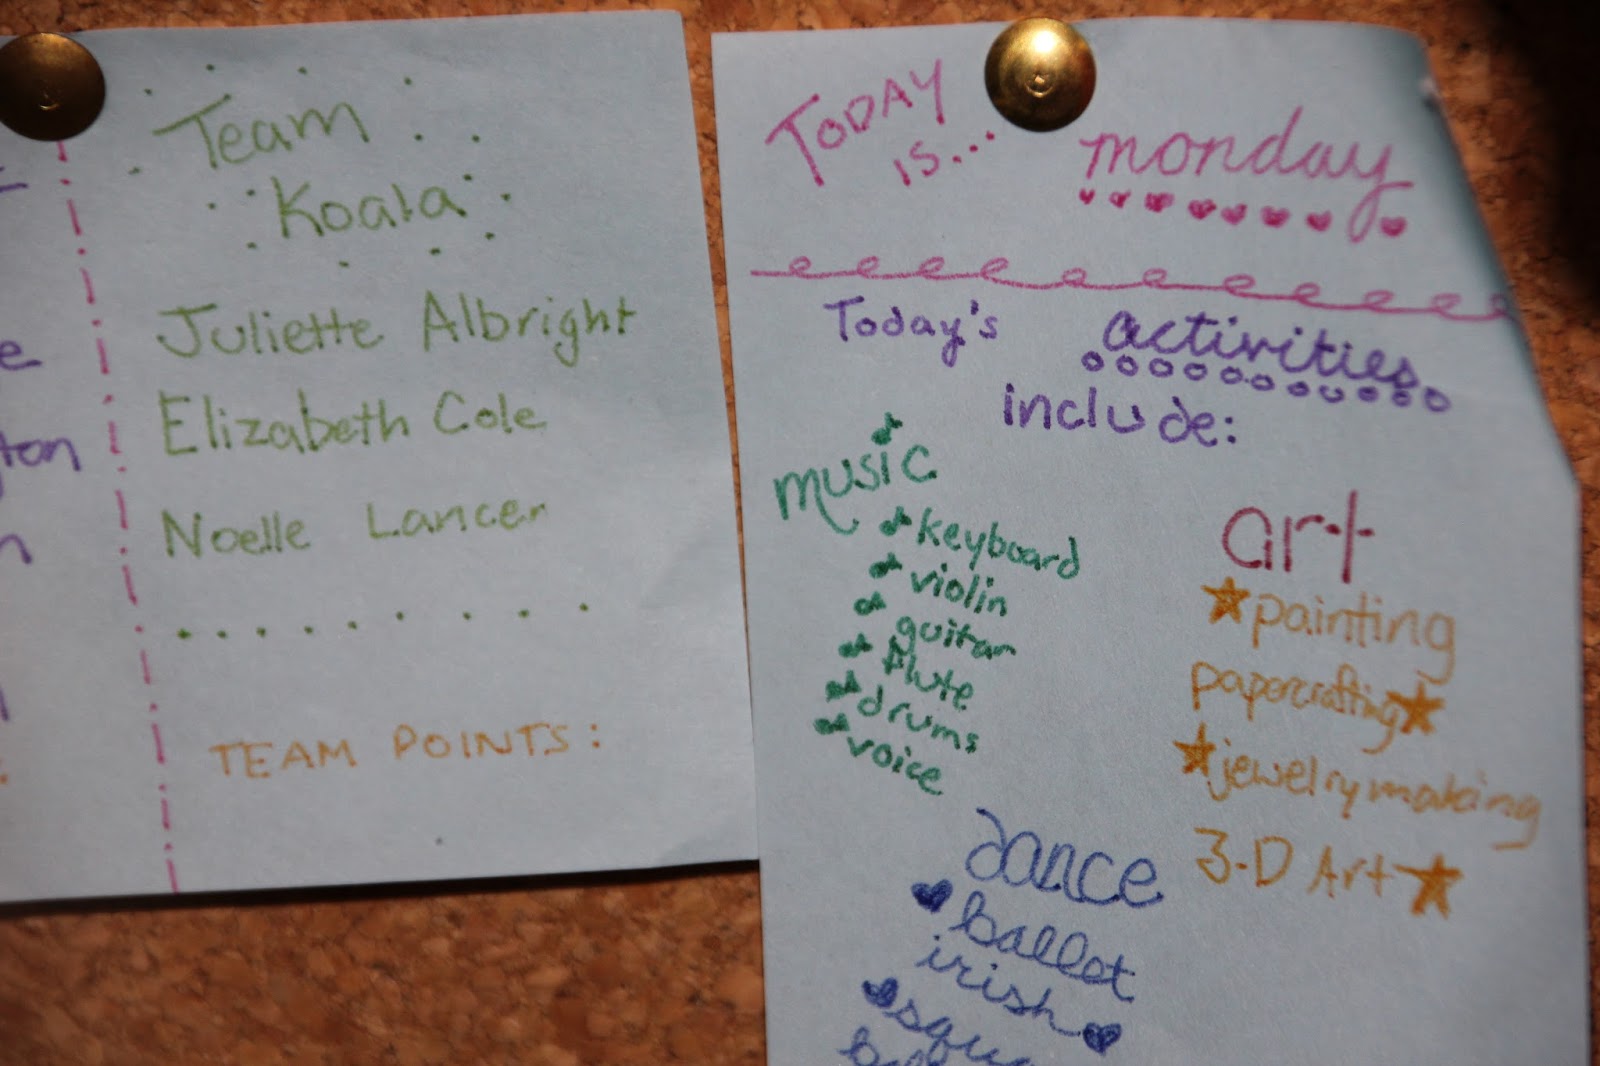 Team
Koala
Juliette Albright
Elizabeth Cole
Noelle Lancer
TEAM POINTS:
TODAY
IS...
monday
Today's activities
include:
music
keyboard
violin
guitar
flute
drums
voice
art
painting
papercrafting
jewelry making
3-D Art
dance
ballet
irish